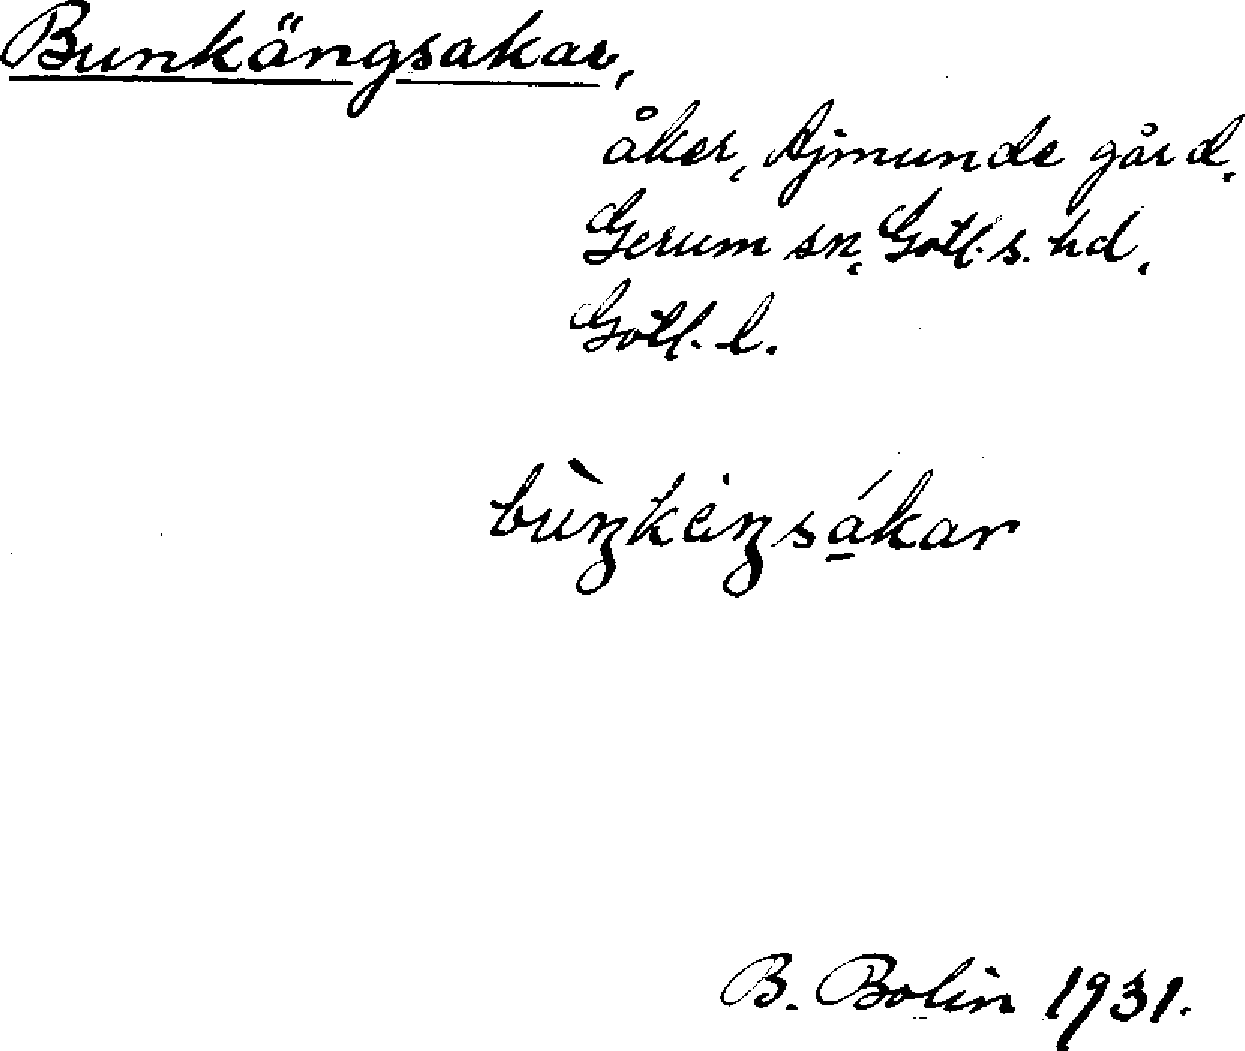 Bunkängsakar,
åker, Ajmunde gård,
Gerum sn, Gotl. s. hd,
Gotl. l.
bùŋkèiŋsá̱kar
B. Bolin 1931.